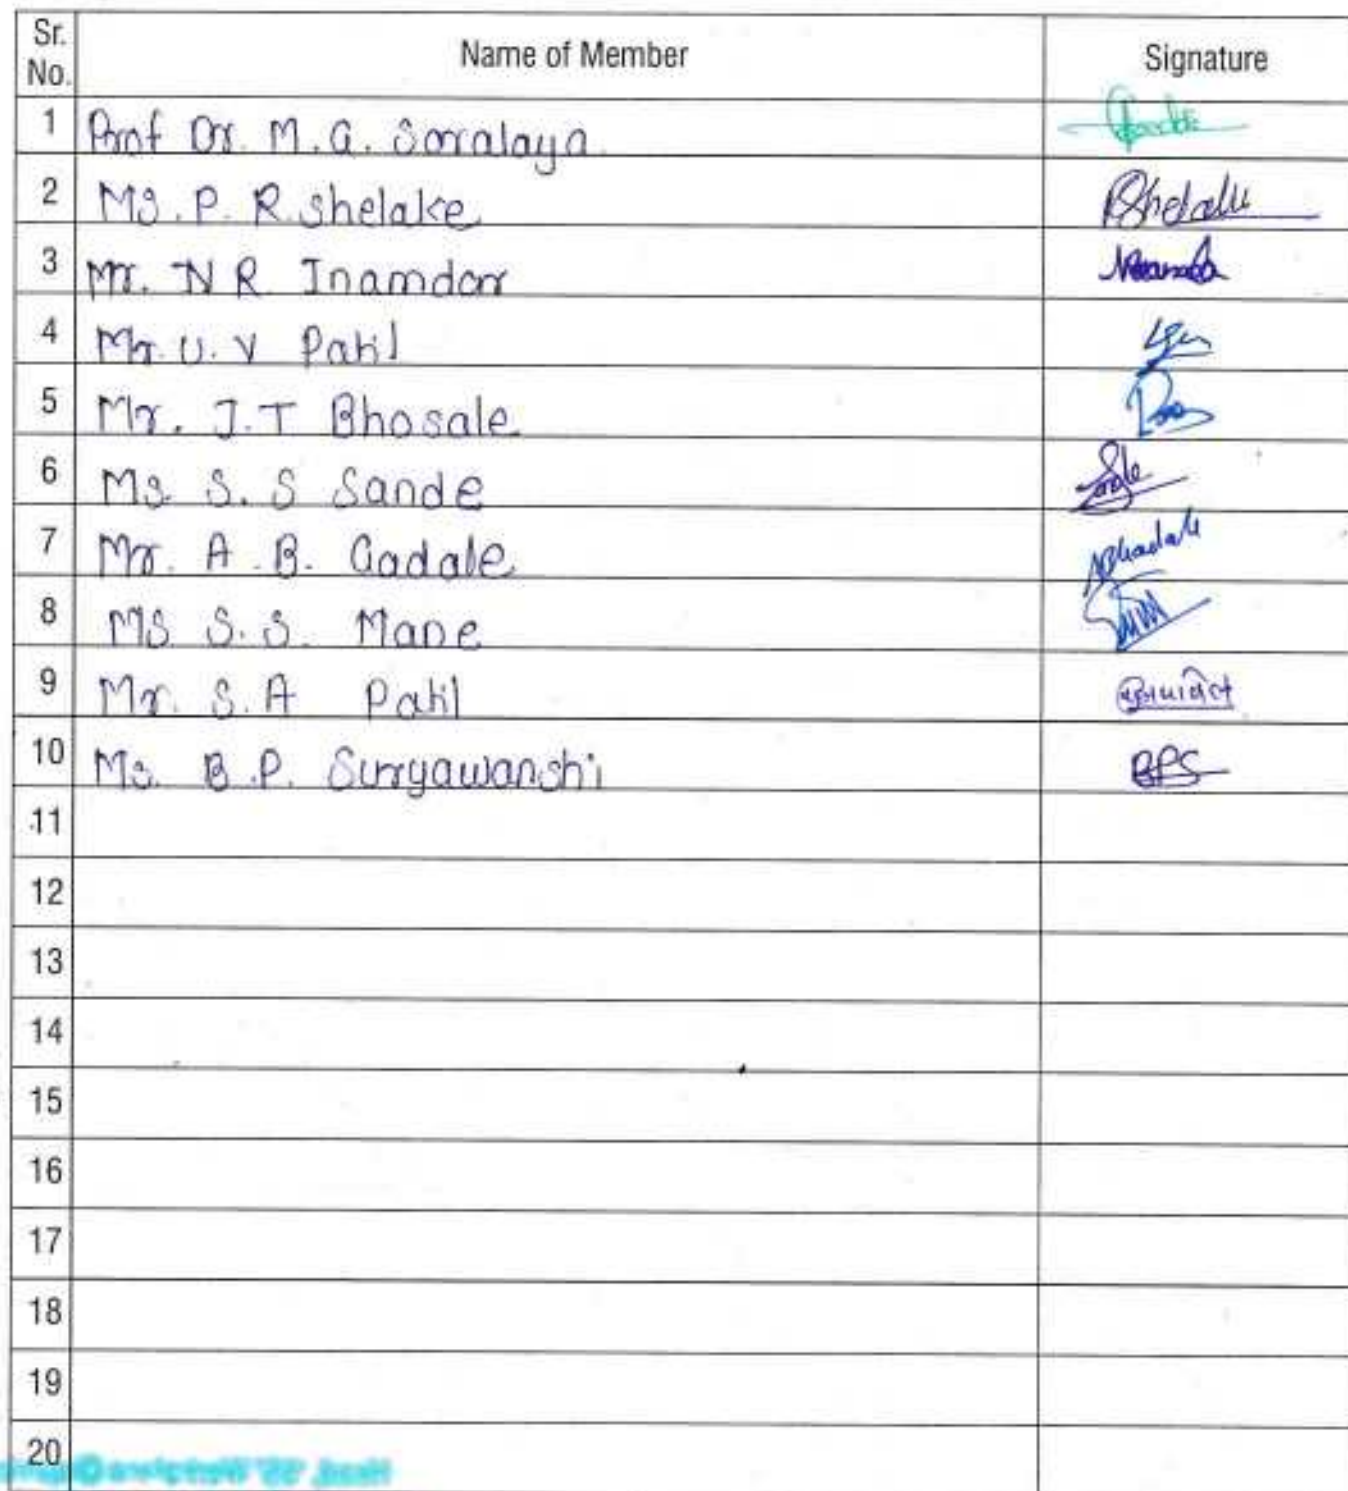 Sr. No. Name of Member Signature
1 Prof Dr. M.G. Sarralaya
2 Ms. P. R. Shelake PShelake
3 Mr. N R. Inamdar
4 Mr. U. V Patil
5 Mr. J.T Bhosale
6 Ms. S. S Sande
7 Mr. A. B. Gadale
8 Ms S. S. Mane
9 Mr. S. A Patil
10 Ms. B. P. Surryawanshi BPS
11
12
13
14
15
16
17
18
19
20